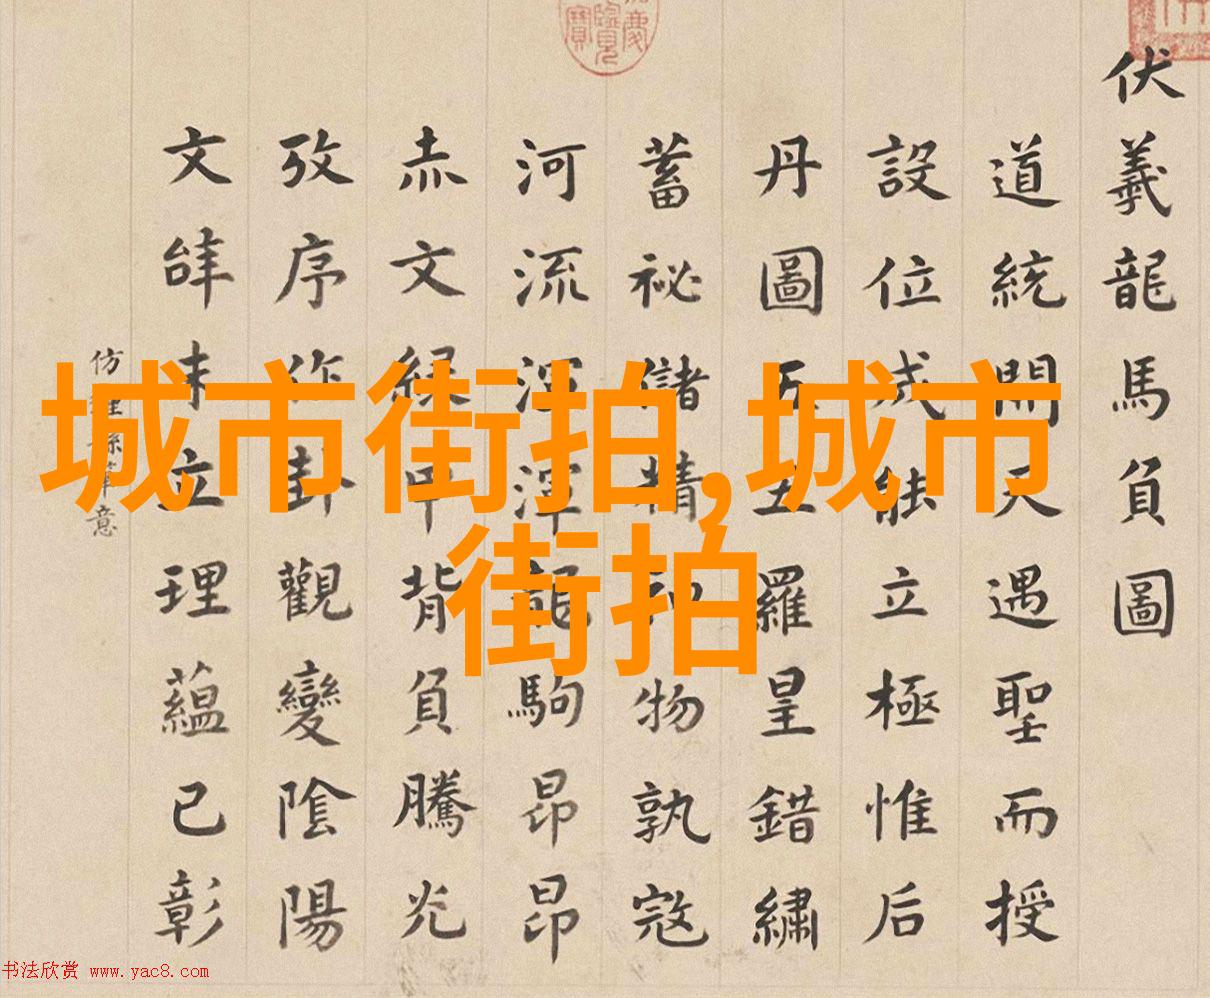 伏羲龍馬負圖
道統開天遇聖而授
設位成能立極惟后
丹圖五羅皇錯繡
蓄祕儲精物孰寇
河流渾渾龍駒昂昂
赤文綠甲背負騰光
攷序作卦觀變陰陽
文𦍑未立理蘊已彰
意
城市街拍,城市
街拍
书法欣赏 www.yac8.com